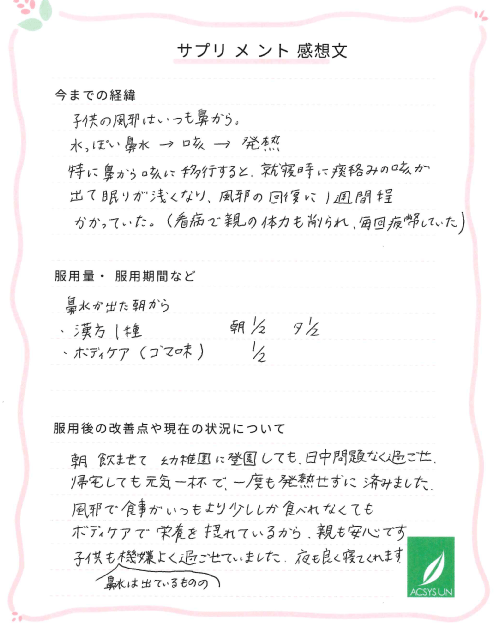 サプリメント感想文
今までの経緯
子供の風邪はいつも鼻から。
水っぽい鼻水 → 咳 → 発熱
特に鼻から咳に移行すると、就寝時に痰絡みの咳が
出て眠りが浅くなり、風邪の回復に1週間程
かかっていた。(看病で親の体力も削られ、毎回疲弊していた)
服用量・服用期間など
鼻水が出た朝から
・漢方1種 朝1/2 夕1/2
・ボディケア(ゴマ味) 1/2
服用後の改善点や現在の状況について
朝 飲ませて 幼稚園に登園しても、日中問題なく過ごせ、
帰宅しても元気一杯で、一度も発熱せずに済みました。
風邪で食事がいつもより少ししか食べれなくても
ボディケアで栄養を摂れているから、親も安心です
子供も機嫌よく過ごせていました。夜も良く寝てくれます
鼻水は出ているものの
ACSYSUN